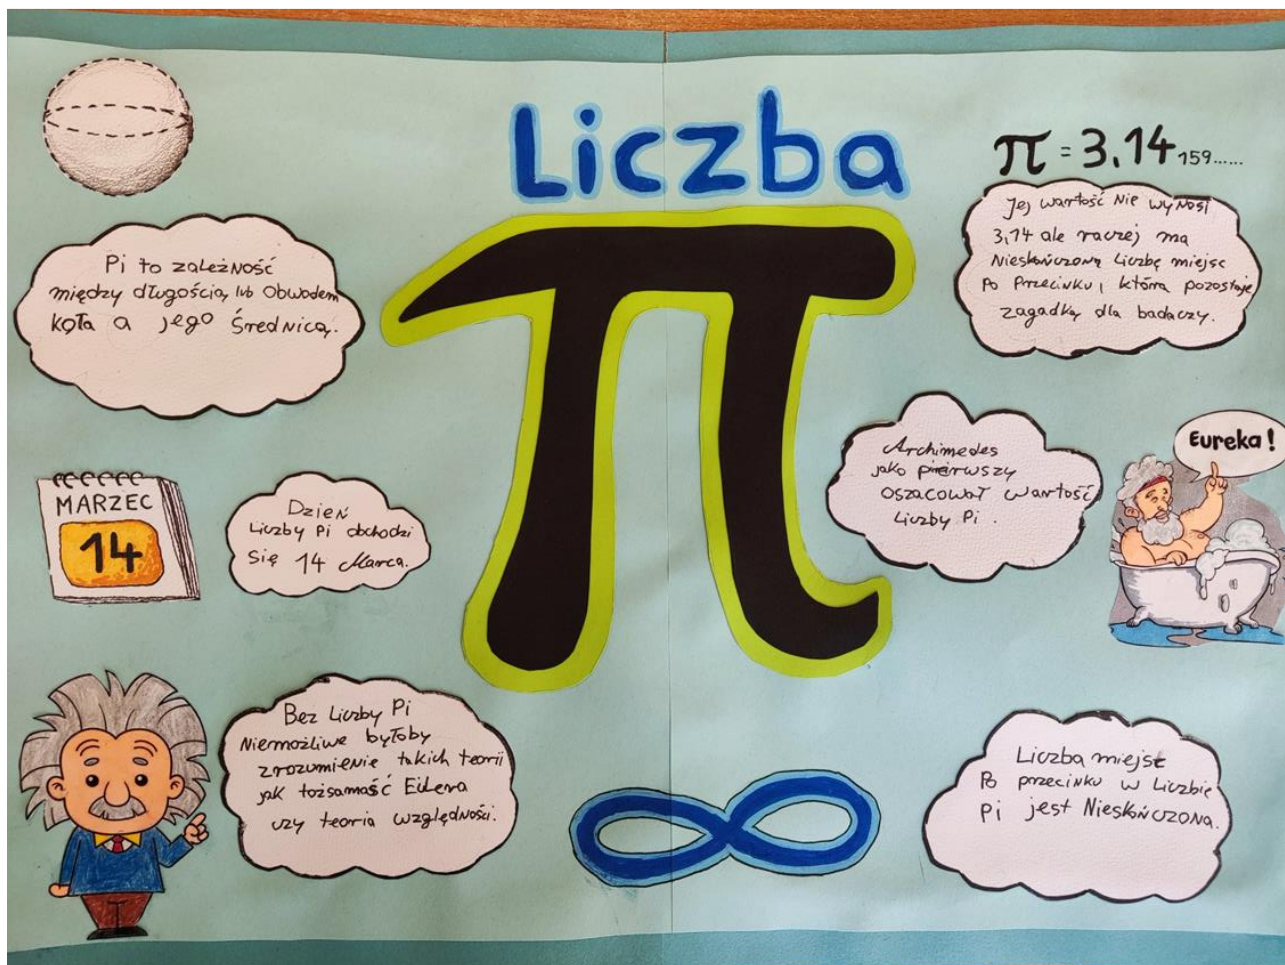 Liczba
π
π = 3.14 159......
Pi to zależność
między długością, lub Obwodem
koła a jego średnicą.
Jej wartość Nie wynosi
3,14 ale raczej ma
Nieskończoną Liczbę miejsc
Po Przecinku, która pozostaje
zagadką dla badaczy.
MARZEC
14
Dzień
Liczby Pi obchodzi
Się 14 Marca.
Archimedes
jako pierwszy
oszacował wartość
Liczby Pi.
Eureka!
Bez Liczby Pi
Niemożliwe byłoby
zrozumienie takich teorii
jak tożsamość Eulera
czy teoria względności.
∞
Liczba miejsc
Po przecinku w Liczbie
Pi jest Nieskończona.